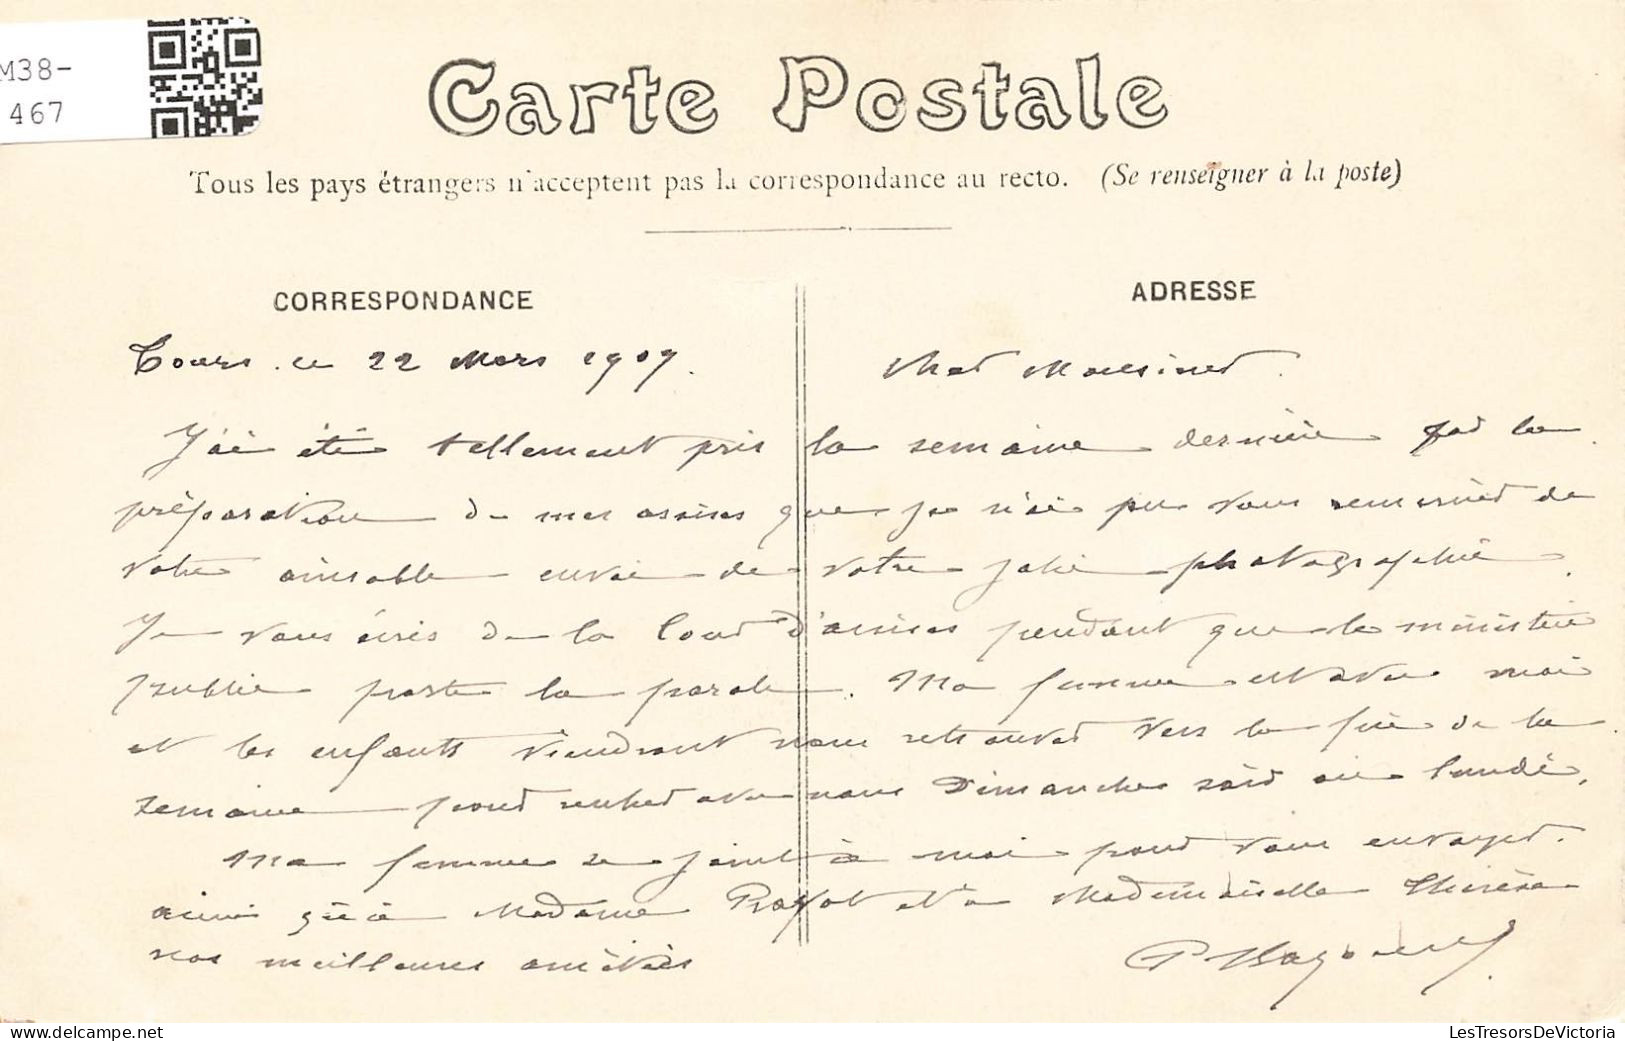 M38-
467
Carte Postale
Tous les pays étrangers n'acceptent pas la correspondance au recto. (Se renseigner à la poste)
CORRESPONDANCE
ADRESSE
Tours. ce 22 Mars 1909.
Cher Monsieur.
J'ai été tellement pris la semaine dernière par la
préparation de mes assises que je n'ai pu vous remercier de
votre aimable envoi de votre jolie photographie.
Je vous écris de la Cour d'assises pendant que le ministère
public porte la parole. Ma femme est avec moi
et les enfants viendront nous retrouver vers la fin de la
semaine pour rentrer avec nous Dimanche soir ou lundi.
Ma femme se joint à moi pour vous envoyer.
ainsi qu'à Madame et à Mademoiselle Thérèse
nos meilleures amitiés